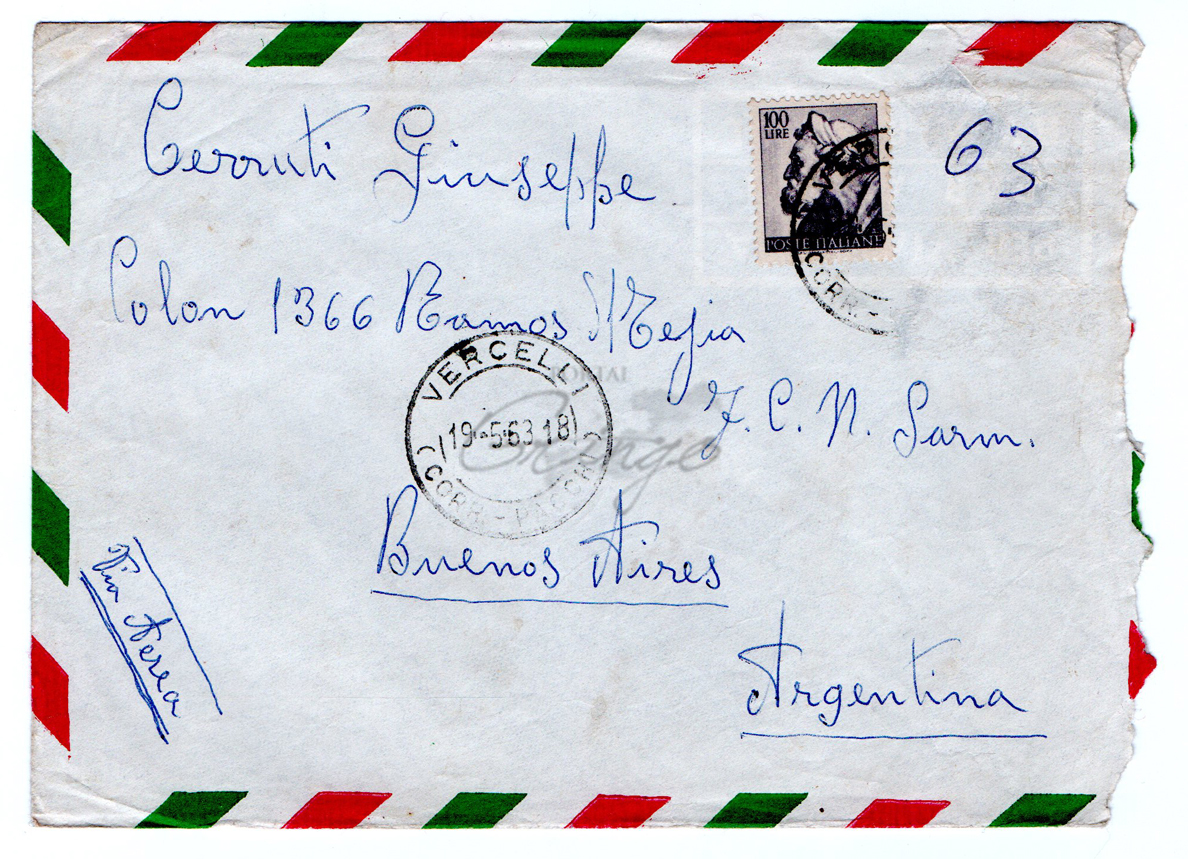 Cerruti Giuseppe
63
100
LIRE
POSTE ITALIANE
CORR.-
Colon 1366 Ramos Mejia
F.C.N. Sarm.
VERCELLI
19-5-63 18
CORR.-PACCHI
PORTAL
Gringo
Buenos Aires
Argentina
Via Aerea